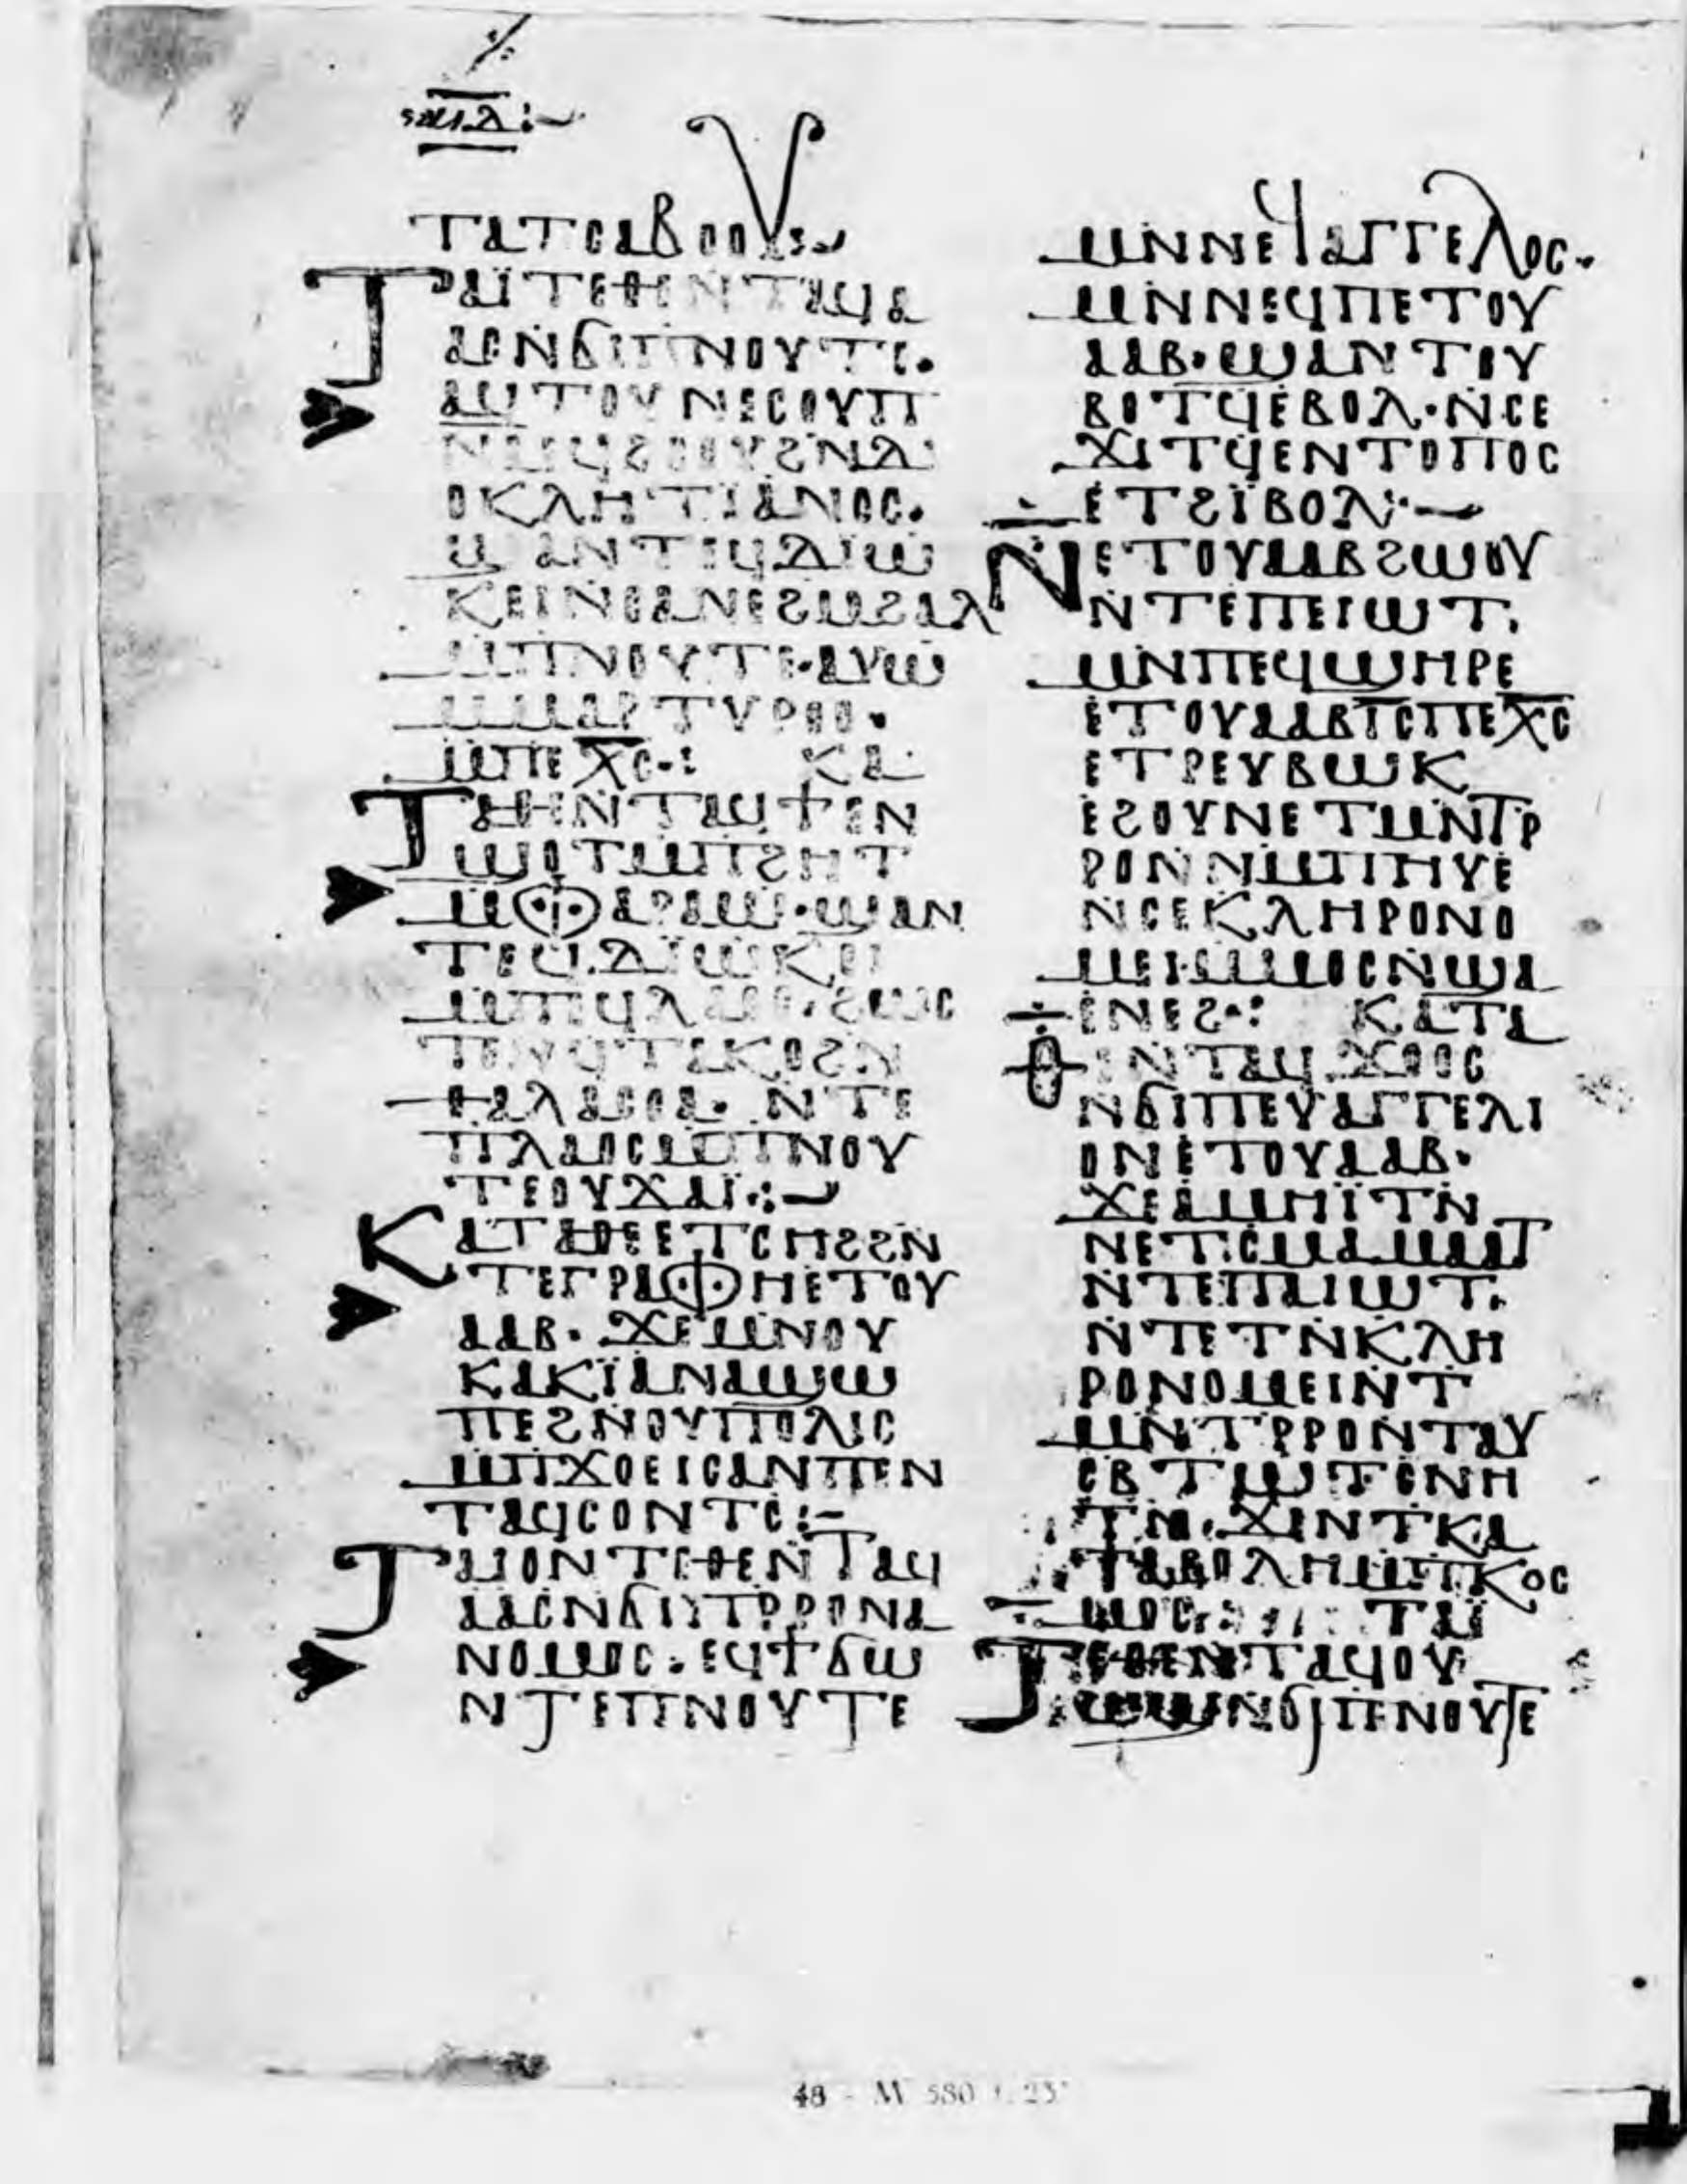 ⲧⲁⲧⲥⲁⲃⲟⲟⲩ:~
ⲧⲁⲓ̈ⲧⲉⲑⲉⲛⲧⲁϥⲁ
ⲁⲥⲛ̄ϭⲓⲡⲛⲟⲩⲧⲉ.
ⲟⲕⲗⲏⲧⲓⲁⲛⲟⲥ.
ϣⲁⲛⲧⲉϥⲇⲓⲱ
ⲕⲉⲓⲛⲥⲁⲛⲉϩⲙϩⲁⲗ
ⲙⲡⲛⲟⲩⲧⲉ·ⲁⲩⲱ
ⲙⲙⲁⲣⲧⲩⲣⲟⲥ.
ⲙⲡⲉⲭ̅ⲥ̅·: ⲕⲁ
ⲧⲁⲑⲉⲛⲧⲁϥϯⲉⲛ
ϣⲟⲧⲙⲡϩⲏⲧ
ⲙⲫⲁⲣⲁⲱ·ϣⲁⲛ
ⲧⲉϥⲇⲓⲱⲕⲉⲓ
ⲑⲁⲗⲁⲥⲥⲁ· ⲛⲧⲉ
ⲡⲗⲁⲟⲥⲙⲡⲛⲟⲩ
ⲧⲉⲟⲩϫⲁⲓ̈:~
ⲕⲁⲧⲁⲑⲉⲉⲧⲥⲏϩϩⲛ
ⲧⲉⲅⲣⲁⲫⲏⲉⲧⲟⲩ
ⲁⲁⲃ· ϫⲉⲙⲛⲟⲩ
ⲕⲁⲕⲓ̈ⲁⲛⲁϣⲱ
ⲡⲉϩⲛⲟⲩⲡⲟⲗⲓⲥ
ⲙⲡϫⲟⲉⲓⲥⲁⲛⲡⲉⲛ
ⲧⲁϥⲥⲟⲛⲧⲥ:–
ⲧⲁⲓⲟⲛⲧⲉⲑⲉⲛⲧⲁϥ
ⲁⲁⲥⲛϭⲓⲡⲣⲣⲟⲛⲁ
ⲛⲟⲙⲟⲥ·ⲉϥϯϭⲱ
ⲛⲧⲉⲡⲛⲟⲩⲧⲉ
ⲙⲛⲛⲉϥⲁⲅⲅⲉⲗⲟⲥ.
ⲙⲛⲛⲉϥⲡⲉⲧⲟⲩ
ⲁⲁⲃ·ϣⲁⲛⲧⲟⲩ
ⲃⲟⲧϥⲉⲃⲟⲗ·ⲛⲥⲉ
ϫⲓⲧϥⲉⲛⲧⲟⲡⲟⲥ
ⲉⲧϩⲓ̈ⲃⲟⲗ:~
ⲛⲉⲧⲟⲩⲁⲁⲃϩⲱⲟⲩ
ⲛⲧⲉⲡⲉⲓⲱⲧ.
ⲙⲛⲡⲉϥϣⲏⲣⲉ
ⲉⲧⲟⲩⲁⲁⲃⲓ̅ⲥ̅ⲡⲉⲭ̅ⲥ̅
ⲉⲧⲣⲉⲩⲃⲱⲕ
ⲉϩⲟⲩⲛⲉⲧⲙⲛⲧⲣ
ⲣⲟⲛⲛⲙⲡⲏⲩⲉ
ⲛⲥⲉⲕⲗⲏⲣⲟⲛⲟ
ⲙⲉⲓⲙⲙⲟⲥⲛϣⲁ
ⲉⲛⲉϩ·: ⲕⲁⲧⲁ
ⲑⲉⲛⲧⲁϥϫⲟⲟⲥ
ⲛϭⲓⲡⲉⲩⲁⲅⲅⲉⲗⲓ
ⲟⲛⲉⲧⲟⲩⲁⲁⲃ·
ϫⲉⲁⲙⲏⲓ̈ⲧⲛ
ⲛⲉⲧⲥⲙⲁⲙⲁⲁⲧ
ⲛⲧⲉⲡⲁⲓⲱⲧ.
ⲛⲧⲉⲧⲛⲕⲗⲏ
ⲣⲟⲛⲟⲙⲉⲓⲛⲧ
ⲙⲛⲧⲣⲣⲟⲛⲧⲁⲩ
ⲥⲃⲧⲱⲧⲥⲛⲏ
ⲧⲛ·ϫⲓⲛⲧⲕⲁ
ⲧⲁⲃⲟⲗⲏⲙⲡⲕⲟⲥ
ⲙⲟⲥ: ⲧⲁⲓ̈
ⲧⲉⲑⲉⲛⲧⲁϥⲟⲩ
ⲛϭⲓⲡⲛⲟⲩⲧⲉ